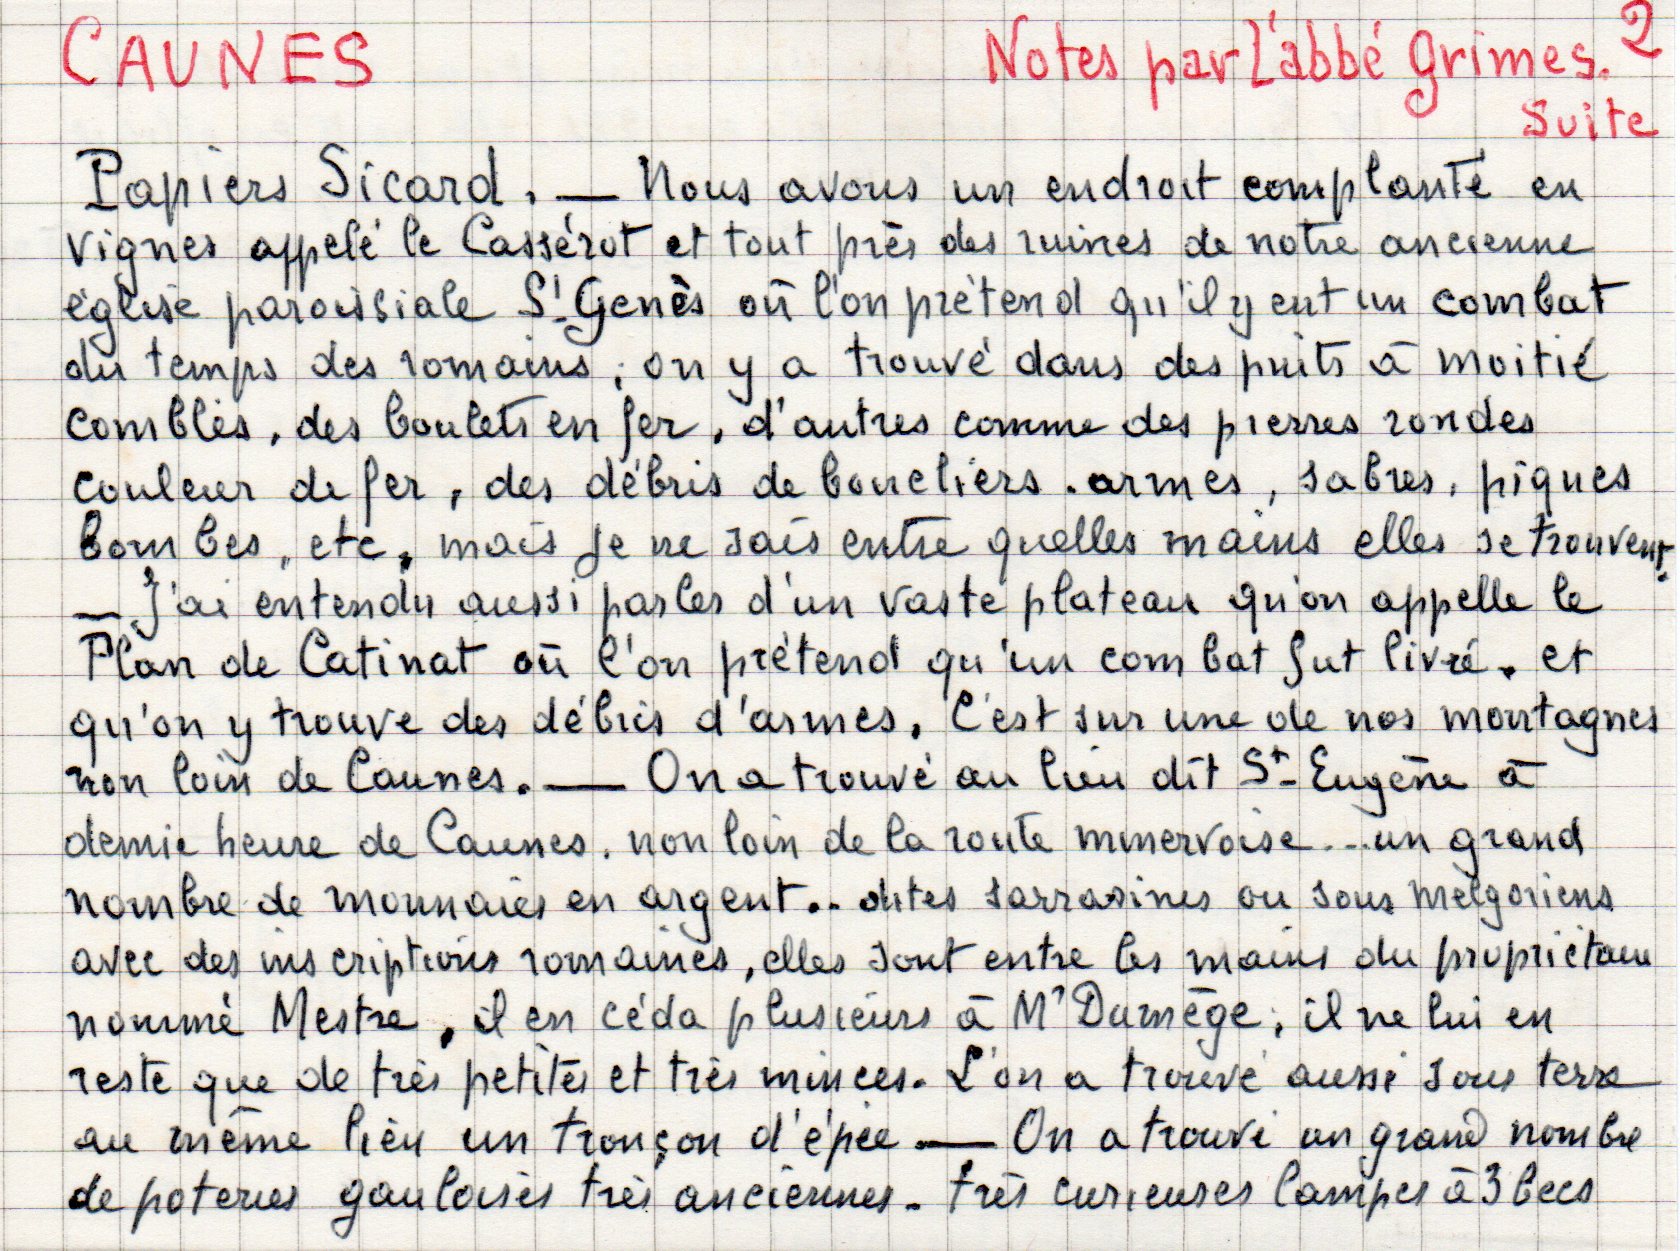 CAUNES
Notes par L'abbé Grimes. 2
suite
Papiers Sicard. — Nous avons un endroit complanté en
vignes appelé le Cassérot et tout près des ruines de notre ancienne
église paroissiale St Genès où l'on prétend qu'il y eut un combat
du temps des romains ; on y a trouvé dans des puits à moitié
comblés, des boulets en fer, d'autres comme des pierres rondes
couleur de fer, des débris de boucliers. armes, sabres, piques
bombes, etc, mais je ne sais entre quelles mains elles se trouvent.
— J'ai entendu aussi parler d'un vaste plateau qu'on appelle le
Plan de Catinat où l'on prétend qu'un combat fut livré. et
qu'on y trouve des débris d'armes, C'est sur une de nos montagnes
non loin de Caunes. — On a trouvé au lieu dit St Eugène à
demie heure de Caunes. non loin de la route minervoise... un grand
nombre de monnaies en argent.. dites sarrasines ou sous melgoriens
avec des inscriptions romaines, elles sont entre les mains du propriétaire
nommé Mestre, il en céda plusieurs à Mr Dumège ; il ne lui en
reste que de très petites et très minces. L'on a trouvé aussi sous terre
au même lieu un tronçon d'épée — On a trouvé un grand nombre
de poteries gauloises très anciennes. très curieuses lampes à 3 becs